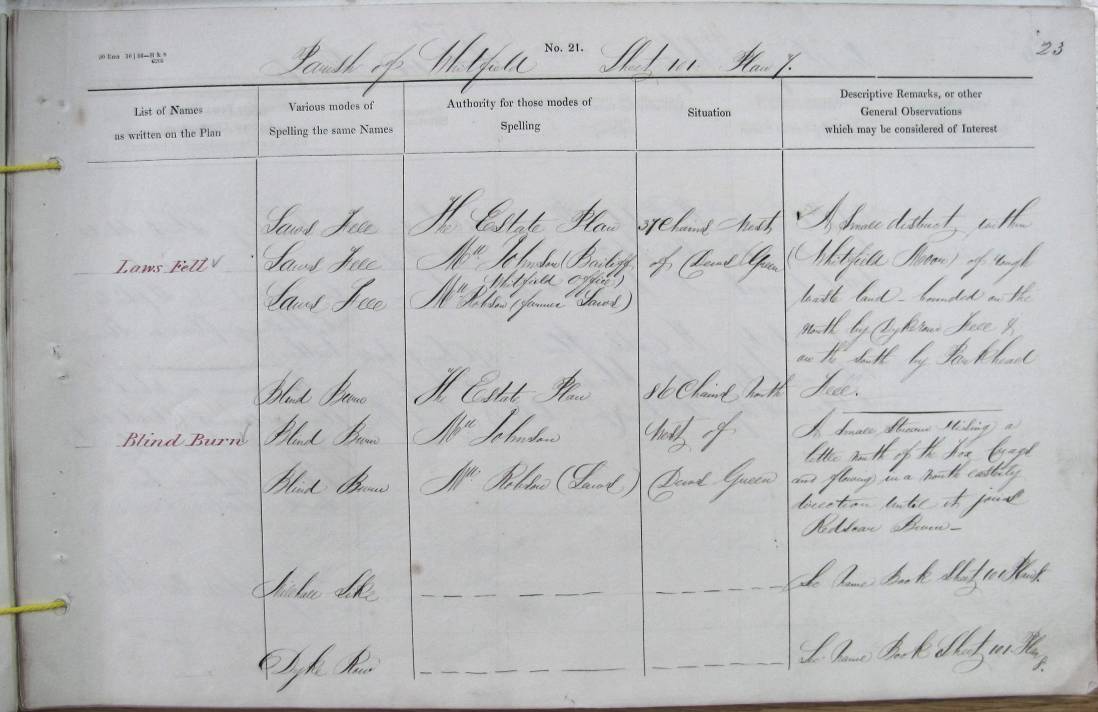 23
No. 21.
Parish of Whitfield Sheet 101 Plan 7.
List of Names
as written on the Plan
Various modes of
Spelling the same Names
Authority for those modes of
Spelling
Situation
Descriptive Remarks, or other
General Observations
which may be considered of Interest
Laws Fell
Laws Fell
Laws Fell
Laws Fell
The Estate Plan
Mr. Johnson (Bailiff
Whitfield Office)
Mr. Robson (farmer Laws)
37 Chains West
of Dews Green
A Small district within
(Whitfield Moor) of rough
waste land - bounded on the
North by Dykerow Fell &
on the South by Parkhead
Fell.
Blind Burn
Blind Burn
Blind Burn
Blind Burn
The Estate Plan
Mr. Johnson
Mr. Robson (Laws)
86 Chains North
West of
Dews Green
A Small Stream rising a
little north of the Crags
and flowing in a north easterly
direction until it joins
Redscar Burn -
Sike
See Name Book Sheet 101 Plan
Dyke Row
See Name Book Sheet 101 Plan
8.